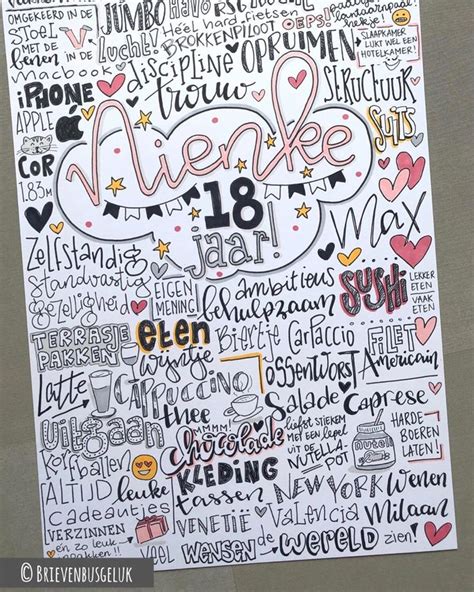 OMGEKEERD IN DE
JUMBO
HAVO
STOEL
MET DE
BENEN in de
macbook
Lucht!
Heel hard fietsen
OEPS!
BROKKENPILOOT
OPRUIMEN
SLAAPKAMER
LIJKT WEL EEN
HOTELKAMER!
discipline
iPHONE
APPLE
trouw
STRUCTUUR
SUITS
COR
1.83 M
Nienke
18
jaar!
MAX
Zelfstandig
standvastig
gezelligheid
EIGEN
MENING
ambitious
behulpzaam
SUSHI
LEKKER
ETEN
VAAK
ETEN
TERRASJE
PAKKEN
eten
wijntje
Biertje
Carpaccio
FILET
Americain
OSSENWORST
Latte
CAPPUCCINO
thee
Salade Caprese
UITGAAN
MMMM!
chocolade
liefst stiekem
met een lepel
UIT DE
NUTELLA-
POT
Nutella
HARDE
BOEREN
LATEN!
Korfballen
KLEDING
ALTIJD leuke
Cadeautjes
VERZINNEN
en zo leuk
inpakken!!
tassen
NEW YORK
Wenen
VENETIË
Valencia
Milaan
Veel WENSEN
de WERELD zien!
© BRIEVENBUSGELUK